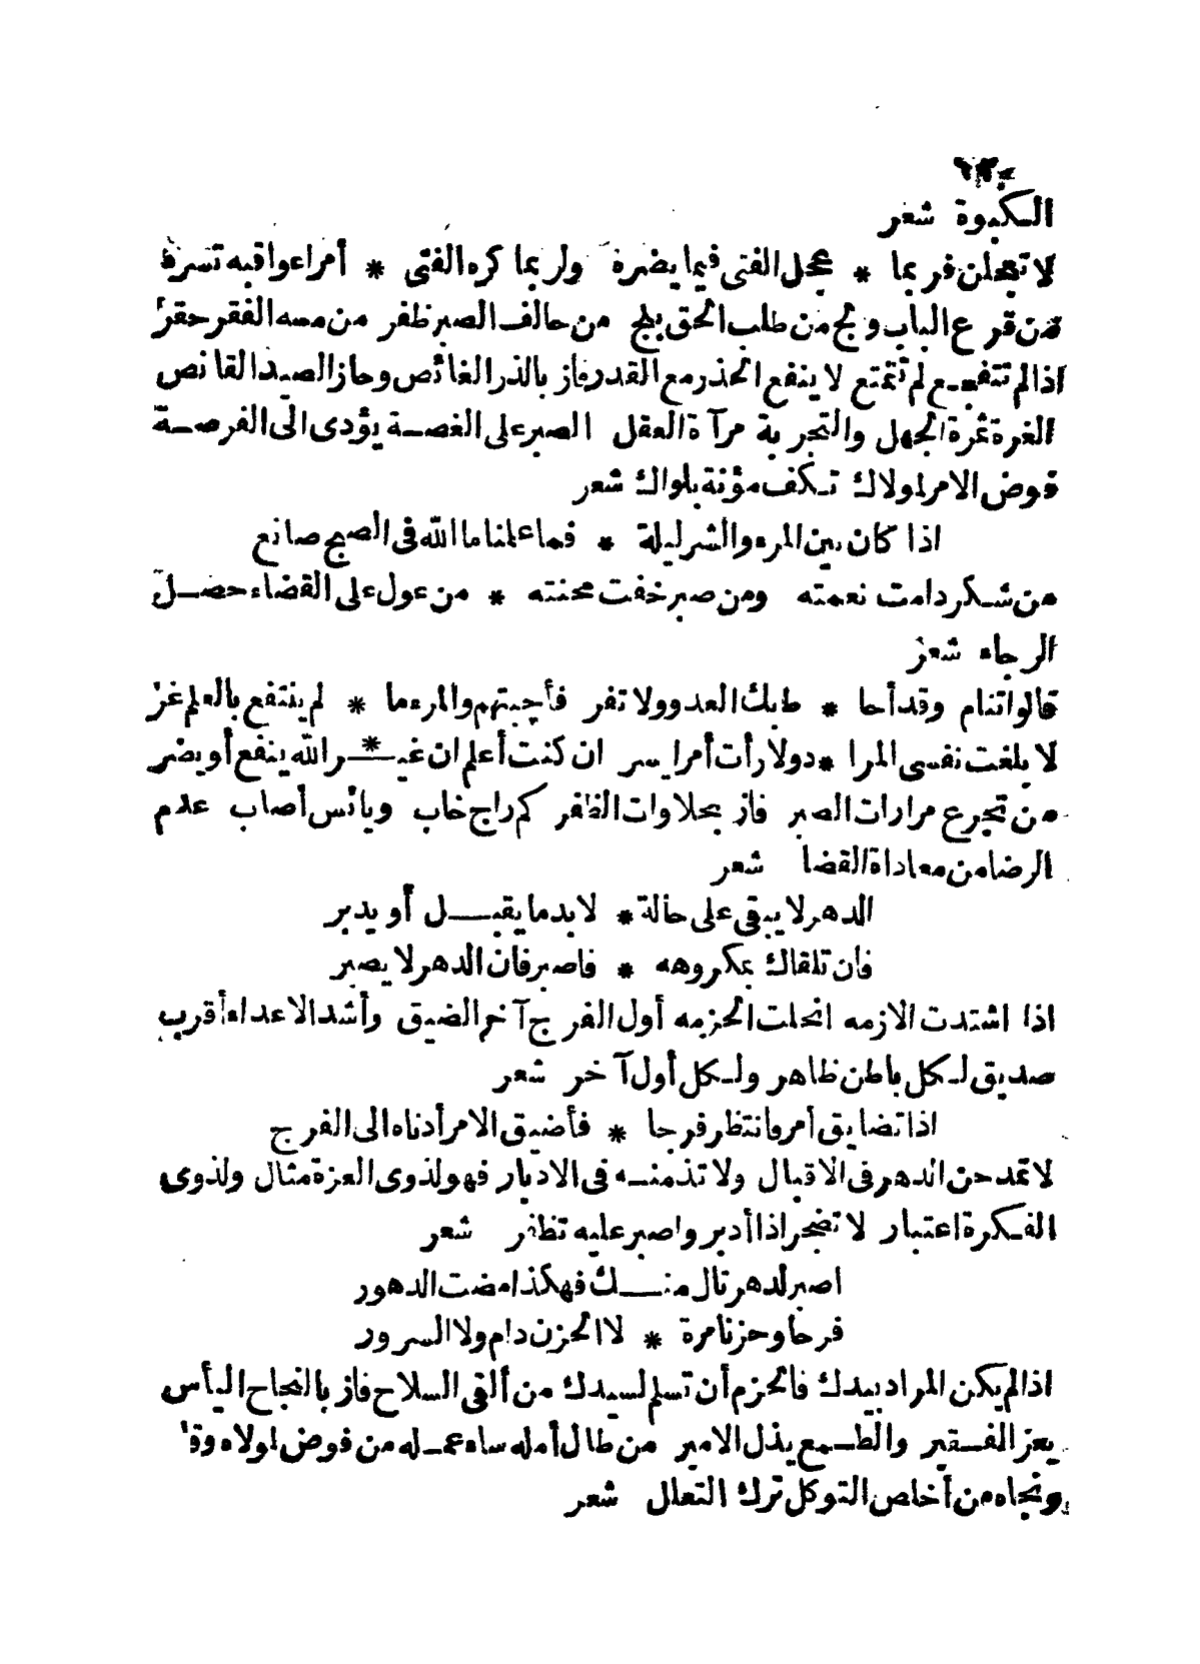 الكبوة شعر
لا تعجلن فربما * عجل الفتى فيما يضره ولربما كره الفتى * أمرا عواقبه تسره
من قرع الباب ولج من طلب الحق بلج من حالف الصبر ظفر من مسه الفقر حقر
اذا لم تنفجع لم تتمتع لا ينفع الحذر مع القدر فاز بالدر الغائص وحاز الصيد القانص
الغرة ثمرة الجهل والتجربة مرآة العقل الصبر على الغصة يؤدى الى الفرصة
فوض الامر لمولاك تكف مؤنة بلواك شعر
اذا كان بين المرء والشر ليلة * فما علمنا ما الله فى الصبح صانع
من شكر دامت نعمته ومن صبر خفت محنته * من عول على القضاء حصل
الرجاء شعر
قالوا تنام وقد أحا * ط بك العدو ولا تفر فأجبتهم والمرء ما * لم ينتفع بالعلم غر
لا بلغت نفسى المرا * دولا رأت أمرا يسر ان كنت أعلم ان غير * الله ينفع أو يضر
من تجرع مرارات الصبر فاز بحلاوات الظفر كم راج خاب ويائس أصاب عدم
الرضا من معاداة القضا شعر
الدهر لا يبقى على حالة * لا بد ما يقبل أو يدبر
فان تلقاك بمكروهه * فاصبر فان الدهر لا يصبر
اذا اشتدت الازمه انحلت الحزمه أول الفرج آخر الضيق وأشد الاعداء أقرب
صديق لكل باطن ظاهر ولكل أول آخر شعر
اذا تضايق أمر فانتظر فرجا * فأضيق الامر أدناه الى الفرج
لا تمدحن الدهر فى الاقبال ولا تذمنه فى الادبار فهو لذوى العزة مثال ولذوى
الفكرة اعتبار لا تضجر اذا أدبر واصبر عليه تظفر شعر
اصبر لدهر نال منك فهكذا مضت الدهور
فرحا وحزنا مرة * لا الحزن دام ولا السرور
اذا لم يكن المراد بيدك فالحزم أن تسلم لسيدك من ألقى السلاح فاز بالنجاح اليأس
يعز الفقير والطمع يذل الامير من طال أمله ساء عمله من فوض لمولاه وقا
ونجاه من أخلص التوكل ترك التعلل شعر